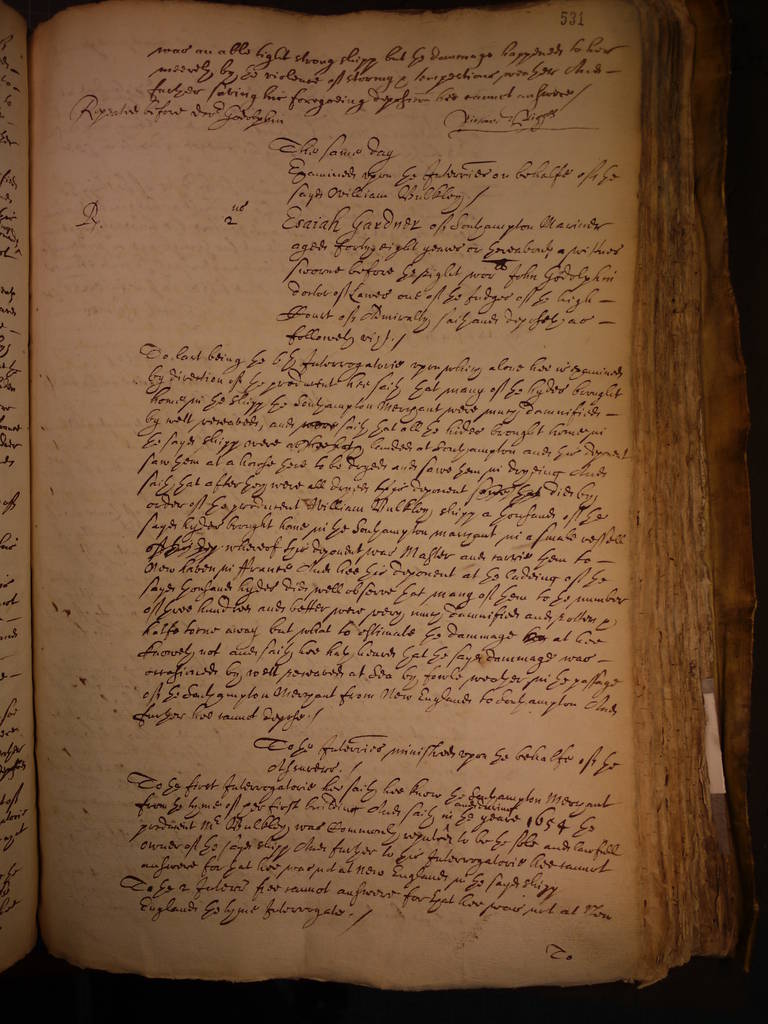 531
was an able tight strong shipp but the dammage happened to her
meerely by the violence of stormy & tempestious weather And
further saving his foregoing deposition hee cannot answere/
Repeated before doctor Godolphin
The same day
Examined upon the Interries on behalfe of the
sayd William Bulkley./
2us
Esaiah Gardner of Southampton Mariner
aged fortyeight yeares or thereabouts a witnes
sworne before the right worll John Godolphin
doctor of Lawes one of the Judges of the high
Court of Admiralty saith and deposeth as
followeth vizt./
To last being the 6th Interrogatorie upon which alone hee is examined
by direction of the producent hee saith that many of the hydes brought
home in the shipp the Southampton Merchant were much damnified
by wett received, and saith that all the hides brought home in
the sayd shipp were landed at Southampton and this deponent
saw them at a house there to be dryed and sawe them in dryeing And
saith that after they were all dryed this deponent did by
order of the producent William Bulkley shipp a thousand of the
sayd hydes brought home in the Southampton marchant in a small vessell
whereof this deponent was Master and carrie them to
New haven in ffrance And hee this deponent at the ladeing of the
sayd thousand hydes did well observe that many of them to the number
of three hundred and better were very much damnified and rotten &
halfe torne away but what to estimate the dammage at hee
knoweth not and saith hee hath heard that the sayd dammage was
occasioned by wett received at Sea by fowle weather in the passage
of the Southampton Merchant from New England to Southampton And
further hee cannot depose./
To the Interries ministred upon the behalfe of the
others./
To the first Interrogatorie hee saith hee knew the Southampton Merchant
from the tyme of her first building And saith in the yeare 1654 the
producent Mr Bulkley was Commonly reputed to be the sole and lawfull
owner of the sayd shipp And further to this Interrogatorie hee cannot
answere for that hee was not at New England in the sayd shipp
To the 2 Interr hee cannot answere for that hee was not at New
England the tyme Interrogate./
To